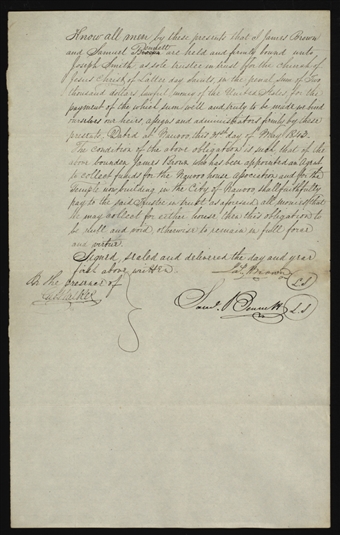 Know all men by these presents that I James Brown
and Samuel Brown Bennett are held and firmly bound unto
Joseph Smith, as sole trustee in trust for the church of
Jesus Christ, of Latter day Saints, in the penal Sum of Two
thousand dollars lawful money of the United States, for the
payment of the which sum well and truly to be made we bind
ourselves our heirs, assigns and administrators firmly by these
presents. Dated at Nauvoo this day of May 1843.
The condition of the above obligation is such that if the
above bounden James Brown who has been appointed an Agent
to collect funds for the Nauvoo house association and for the
Temple now building in the City of Nauvoo, shall faithfully
pay to the said Trustee in trust as aforesaid, all monies that
he may collect for either house, then this obligation to
be null and void, otherwise to remain in full force
and virtue.
Signed, sealed and delivered the day and year
first above written
Jas. Brown L.S
In the presence of
Saml. Bennett L.S